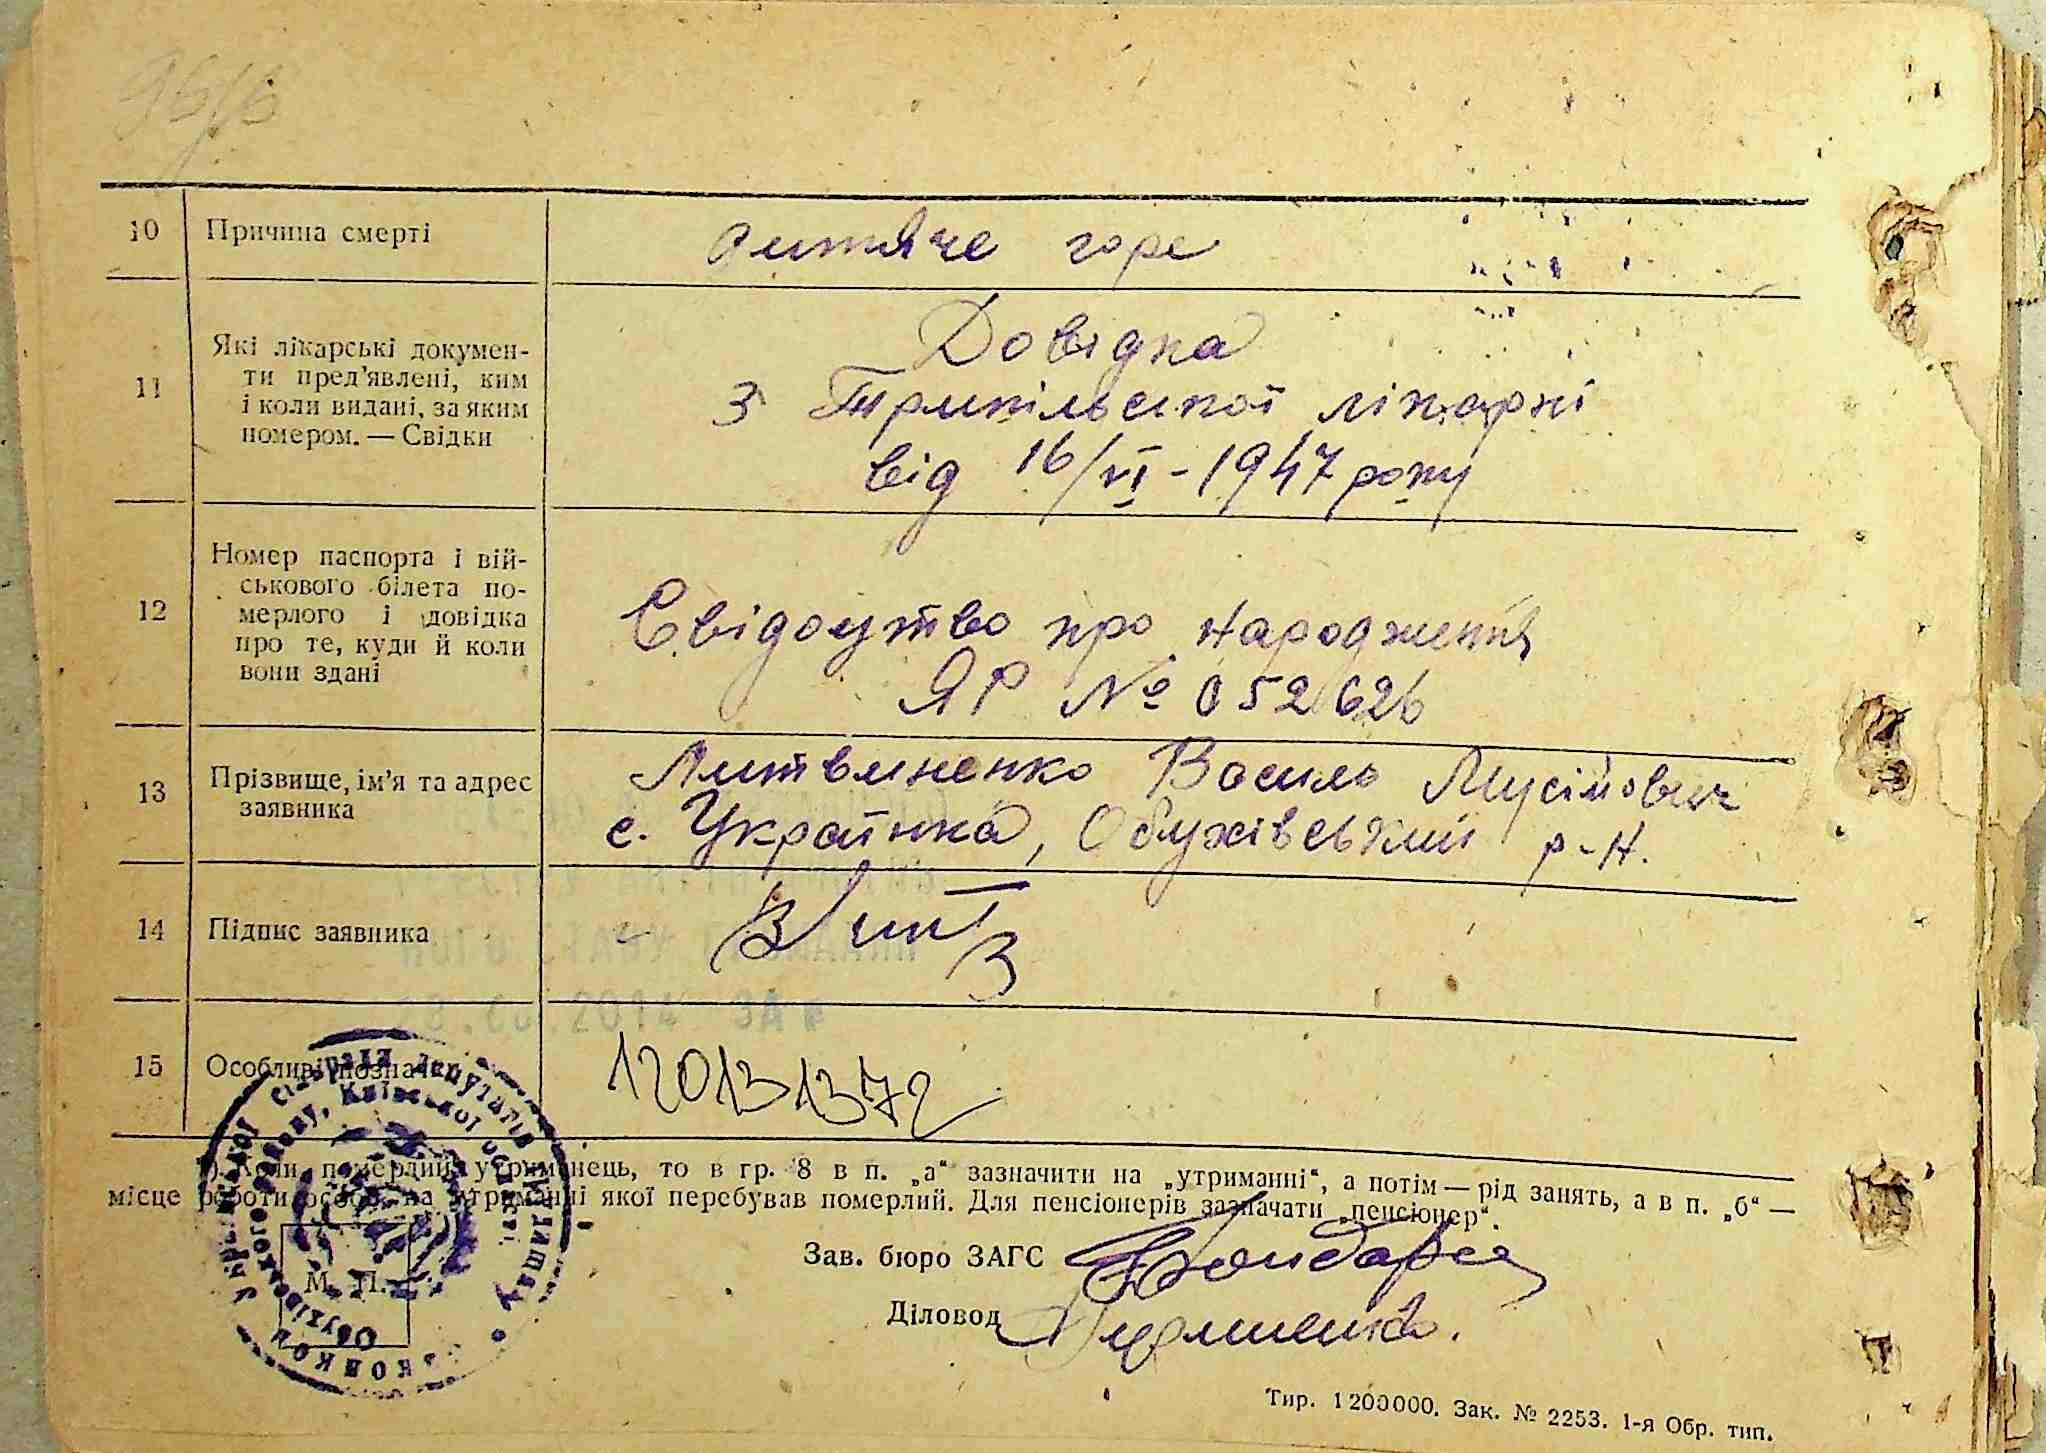 10 Причина смерті дитяче горе
11 Які лікарські докумен-
ти пред’явлені, ким
і коли видані, за яким
номером. — Свідки
Довідка
з Трипільської лікарні
від 16/VI - 1947 року
12 Номер паспорта і вій-
ськового білета по-
мерлого і довідка
про те, куди й коли
вони здані
Свідоцтво про народження
ЯР № 052626
13 Прізвище, ім’я та адрес
заявника
Литвиненко Василь Мусійович
с. Українка, Обухівський р-н.
14 Підпис заявника
В Лит
15 Особливі позначки
12013 1372
Коли померлий утриманець, то в гр. 8 в п. „а“ зазначити на „утриманні“, а потім — рід занять, а в п. „б“ —
місце роботи особи, на утриманні якої перебував померлий. Для пенсіонерів зазначати „пенсіонер“.
М. П.
Зав. бюро ЗАГС
Діловод
Тир. 1200000. Зак. № 2253. 1-я Обр. тип.